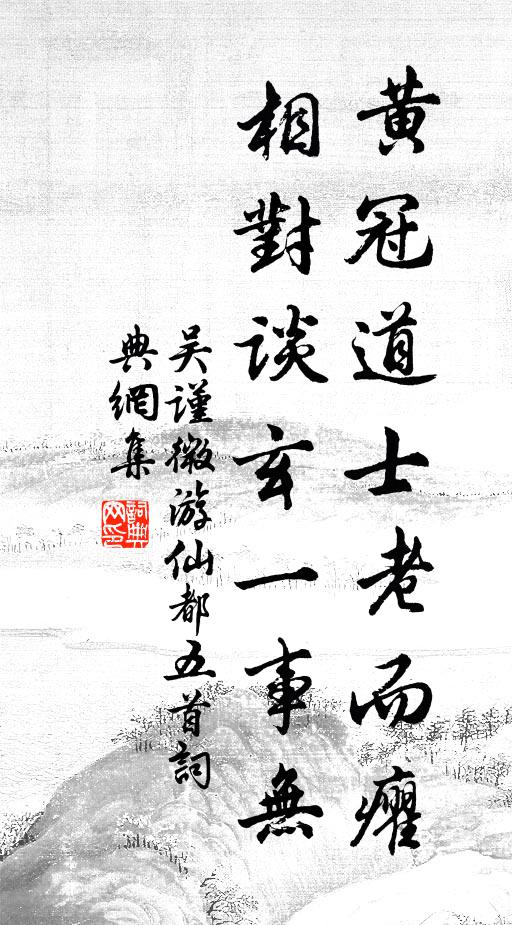 黄冠道士老而癯
相對談玄一事無
吴謹微游仙都五首詞
典網集
詞典
网印